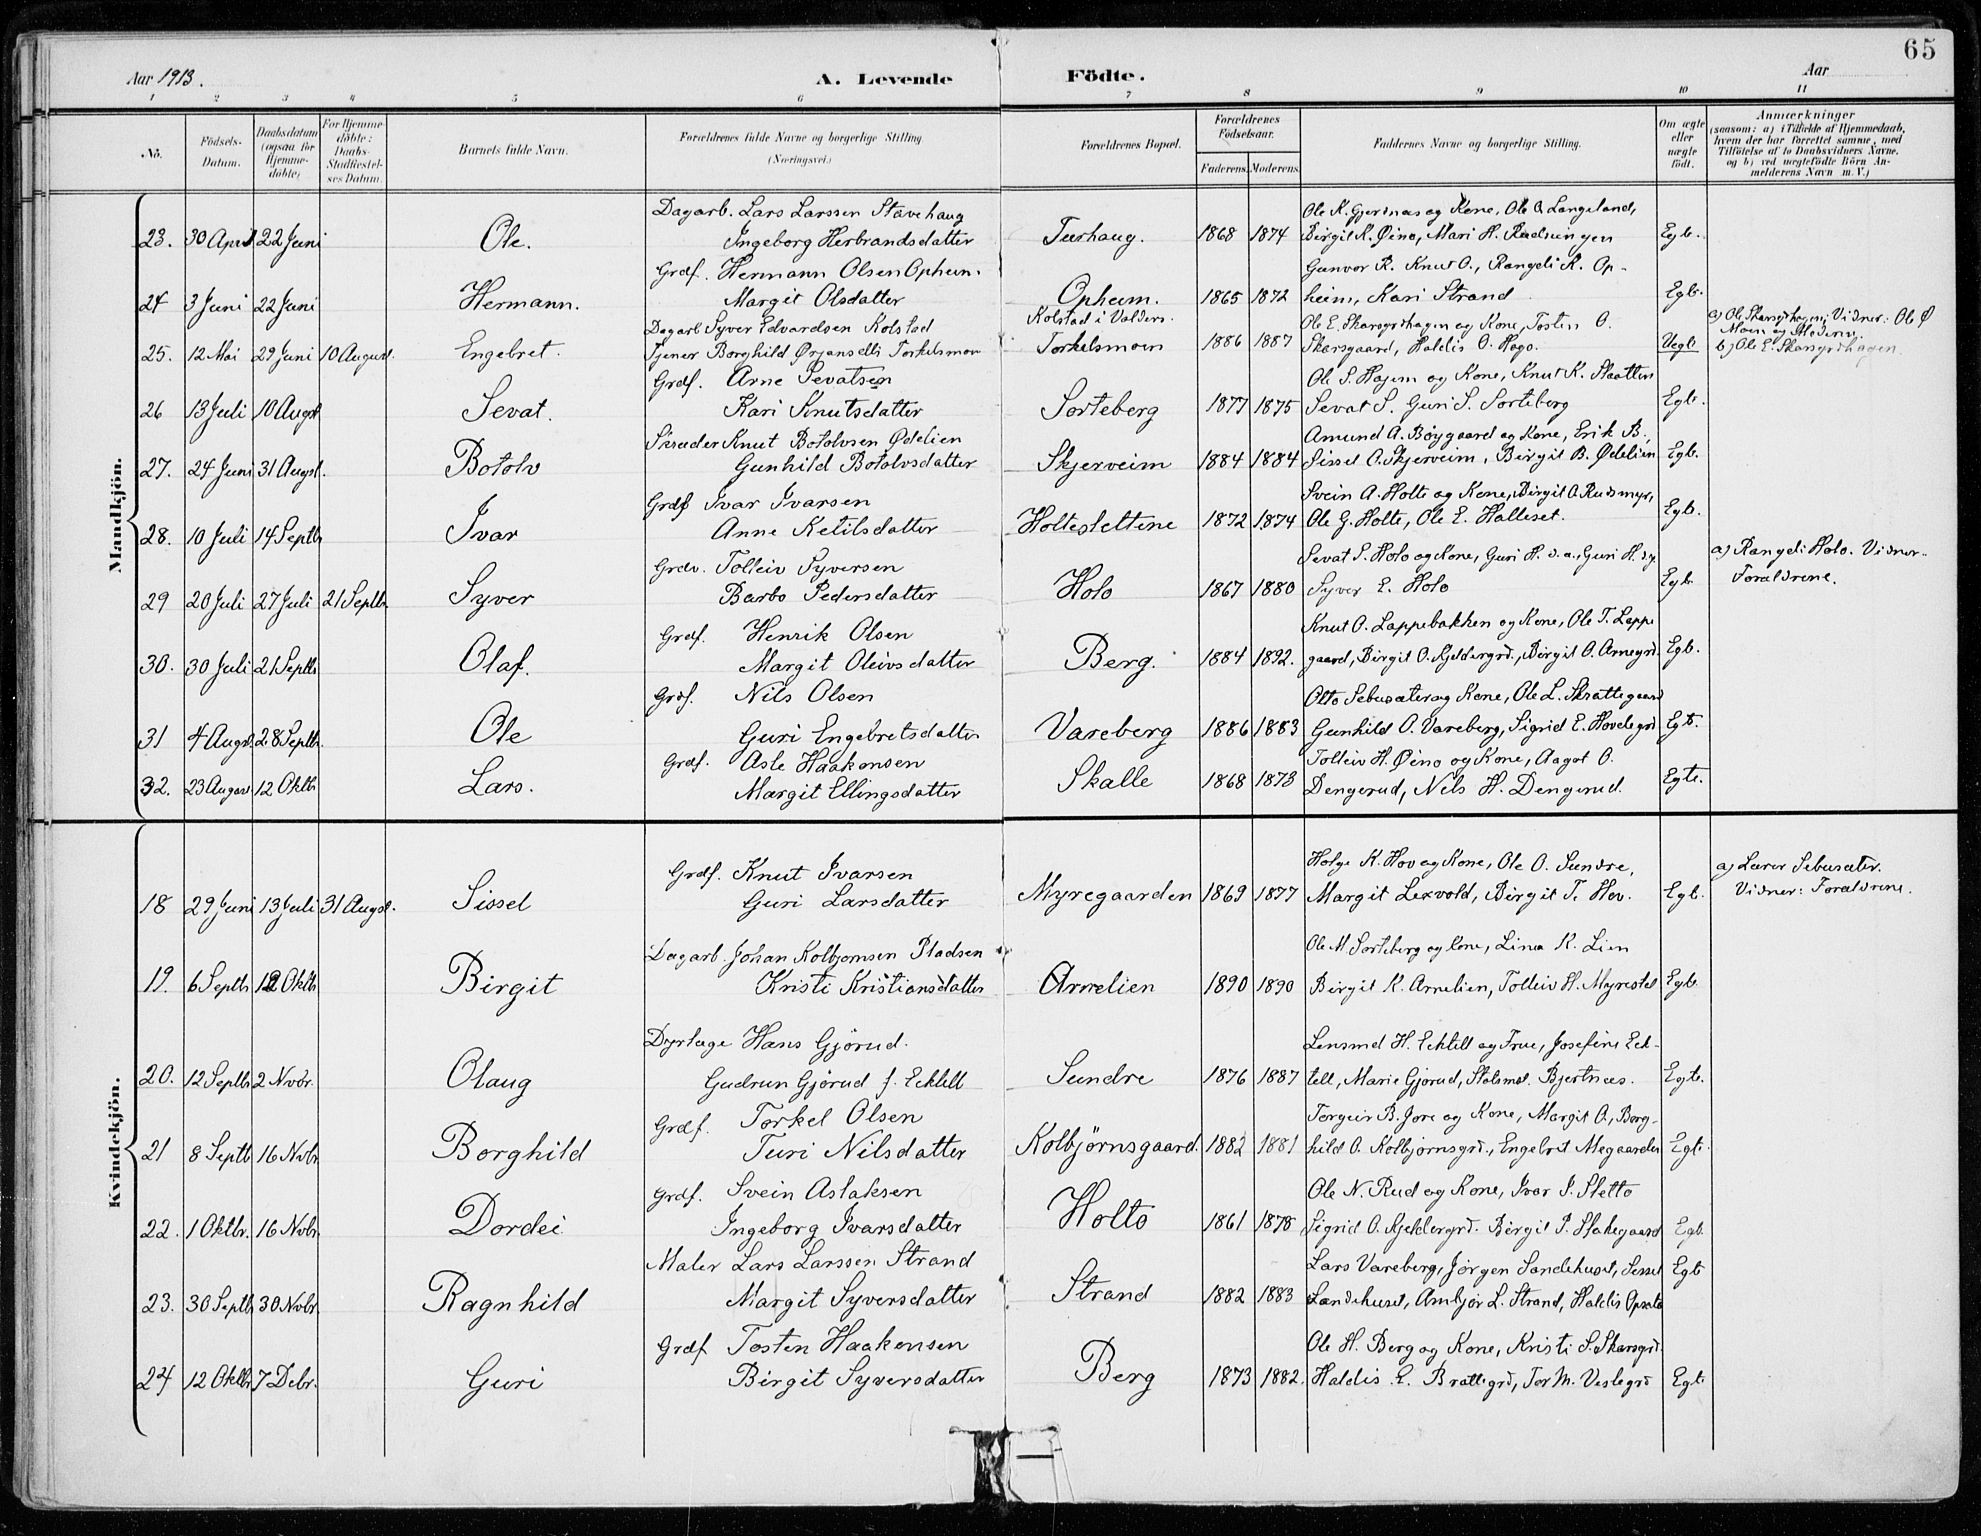 65
Aar 1913.
A. Levende Födte.
Aar
1 2 3 4 5 6 7 8 9 10 11
No.
Födsels-Datum.
Daabsdatum (ogsaa for Hjemme-döbte)
For Hjemme-döbte: Daabs-Stadfæstel-ses Datum.
Barnets fulde Navn.
Forældrenes fulde Navne og borgerlige Stilling (Næringsvei.)
Forældrenes Bopæl.
Forældrenes Födselsaar.
Faderens. Moderens.
Faddernes Navne og borgerlige Stilling.
Om ægte eller uægte født.
Anmærkninger
(saasom: a) i Tilfælde af Hjemmedaab,
hvem der har forrettet samme, med
Tilföielse af to Daabsvidners Navne.
og b) ved uægtefödte Börn An-
melderens Navn m. V.)
Mandkjön.
Dagarb. Lars Larssen Stavehaug Ole K. Gjernæs og Kone, Ole O. Langeland,
23. 30 April 22 Juni Ole. Ingeborg Herbrandsdatter Turhaug. 1868 1874 Birgit K. Øino, Mari H. Rudsingen Egte.
Grdf. Hermann Olsen Opheim. Gunvor K. Knut O., Rangdi K. Op-
24 3 Juni 22 Juni Hermann. Margit Olsdatter Opheim. 1865 1872 heim, Kari Strand Egte.
Dagarb Syver Edvardsen Kolstad Kolstad i Valders. Ole E. Skarsgrdhagen og Kone, Tosten O. a) Ole Skarsgrdhagen; Vidner: Ole Ø
25. 12 Mai 29 Juni 10 August. Engebret. Tjener Borghild Ørjansdtr Torkelsmoen Torkelsmoen 1886 1887 Skarsgaard, Haldis O. Hago. Uegte Moen og Moderen b) Ole E. Skarsgrdhagen.
Grdf. Arne Sevatsen Ole S. Hagen og Kone, Knut K. Slaatten
26 13 Juli 10 Augst Sevat. Kari Knutsdatter Sorteberg 1877 1875 Sevat S. Guri S. Sorteberg Egte.
Skræder Knut Botolvsen Ødelien Amund A. Bøygaard og Kone, Erik B.,
27. 24 Juni 31 Augst. Botolv Gunhild Botolvsdatter Skjerveim 1884 1884 Sissel O. Skjerveim, Birgit B. Ødelien Egte.
Grdf Ivar Ivarsen Svein A. Holto og Kone, Birgit O. Rudsmyr,
28. 10 Juli 14 Septbr Ivar Anne Ketilsdatter Holteslettene 1872 1874 Ole G. Holte, Ole E. Halleset. Egte.
Grdv. Tolleiv Syversen Sevat S. Holo og Kone, Guri H. d. æ., Guri H. d. y. a) Rangdi Holo. Vidner:
29 20 Juli 27 Juli 21 Septbr. Syver Barbo Pedersdatter Holo 1867 1880 Syver E. Holo Egte. Forældrene.
Grdf. Henrik Olsen Knut O. Lappebakken og Kone, Ole T. Lappe
30. 30 Juli 21 Septbr Olaf. Margit Oleivsdatter Berg. 1884 1892. gaard, Birgit O. Kjeldergrd., Birgit O. Arnegrd. Egte.
Grdf. Nils Olsen Otto Sebusæter og Kone, Ole L. Skrattegaard
31 4 Augst. 28 Septbr. Ole Guri Engebretsdatter Vareberg 1886 1883 Gunhild O. Vareberg, Sigrid E. Hovdegrd Egte.
Grdf. Asle Haakonsen Tolleiv H. Øino og Kone, Aagot O.
32. 23 August 12 Oktbr Lars. Margit Ellingsdatter Skalle 1868 1873 Dengerud, Nils H. Dengerud. Egte.
Kvindekjön.
Grdf. Knut Ivarsen Helge K. Hov og Kone, Ole O. Sundre, a) Lærer Sebusæter.
18 29 Juni 13 Juli 31 Augst. Sissel Guri Larsdatter Myregaarden 1869 1877 Margit Lexvold, Birgit T. Hov. Egte. Vidner: Forældrene.
Dagarb. Johan Kolbjørnsen Pladsen Ole M. Sorteberg og Kone, Lina K. Lien
19. 6 Septbr 12 Oktbr Birgit Kristi Kristiansdatter Arnelien 1890 1890 Birgit K. Arnelien, Tolleiv H. Myrestøl Egte.
Dyrlæge Hans Gjørud. Lensmd H. Ecktell og Frue, Josefine Eck-
20. 12 Septbr 2 Novbr. Olaug Gudrun Gjørud f. Ecktell Sundre 1876 1887 tell, Marie Gjørud, Statsmd. Bjertnæs. Egte.
Grdf. Torkel Olsen Torgeir B. Jore og Kone, Margit O., Borg-
21 8 Septbr 16 Novbr Borghild Turi Nilsdatter Kolbjørnsgaard. 1882 1881 hild O. Kolbjørnsgrd., Engebret Megaarden Egte.
Grdf. Svein Aslaksen Ole N. Rud og Kone, Ivar S. Sletto
22. 1 Oktbr. 16 Novbr. Dordei Ingeborg Ivarsdatter Holto 1861 1878 Sigrid O. Kjeldergrd. Birgit P. Stakegaard Egte.
Maler Lars Larssen Strand Lars Vareberg, Jørgen Sandehuset, Sissel Egte
23. 30 Septbr 30 Novbr Ragnhild Margit Syversdatter Strand 1882 1883 Sandehuset, Ambjør L. Strand, Haldis Opsata
Grdf Tosten Haakonsen Ole H. Berg og Kone, Kristi S. Skarsgrd.
24 12 Oktbr 7 Debr. Guri Birgit Syversdatter Berg 1873 1882. Haldis E. Brattegrd, Tor M. Veslegrd Egte